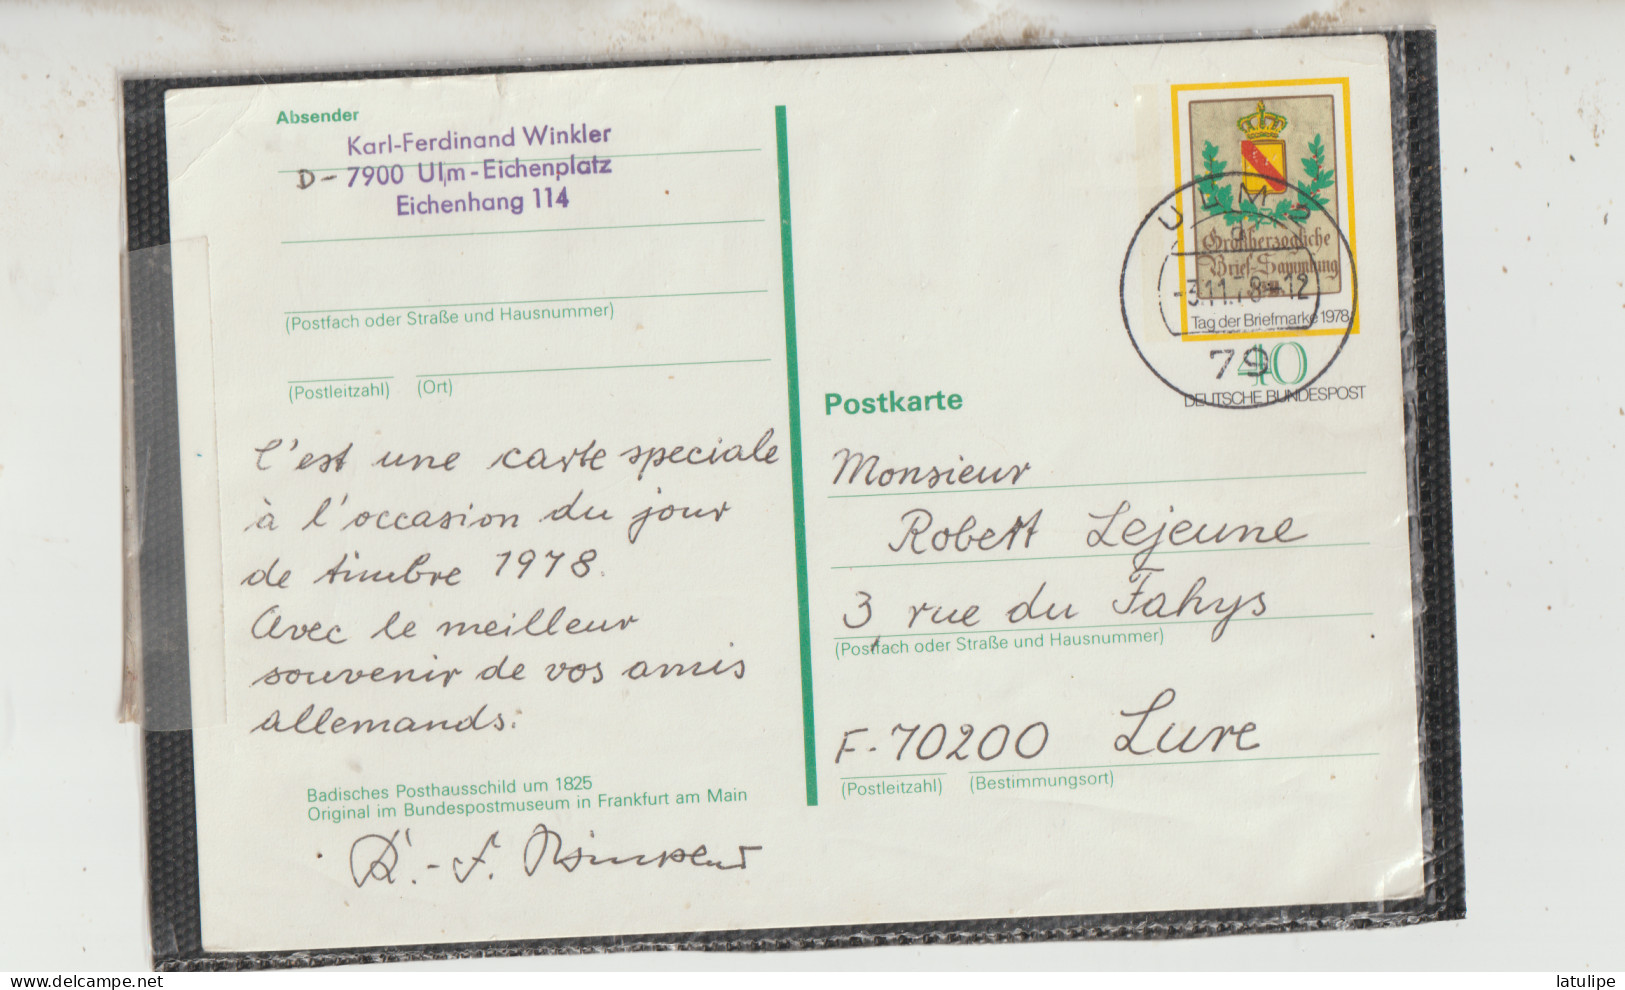 Absender
Karl-Ferdinand Winkler
D- 7900 Ulm-Eichenplatz
Eichenhang 114
(Postfach oder Straße und Hausnummer)
(Postleitzahl) (Ort)
C'est une carte speciale
à l'occasion du jour
de timbre 1978.
Avec le meilleur
souvenir de vos amis
allemands.
Badisches Posthausschild um 1825
Original im Bundespostmuseum in Frankfurt am Main
K.-F. Winkler
Großherzogliche
Brief-Sammlung
Tag der Briefmarke 1978
40
DEUTSCHE BUNDESPOST
ULM
-3.11.78-12
79
Postkarte
Monsieur
Robert Lejeune
3, rue du Fahys
(Postfach oder Straße und Hausnummer)
F-70200 Lure
(Postleitzahl) (Bestimmungsort)
delcampe.net
latulipe